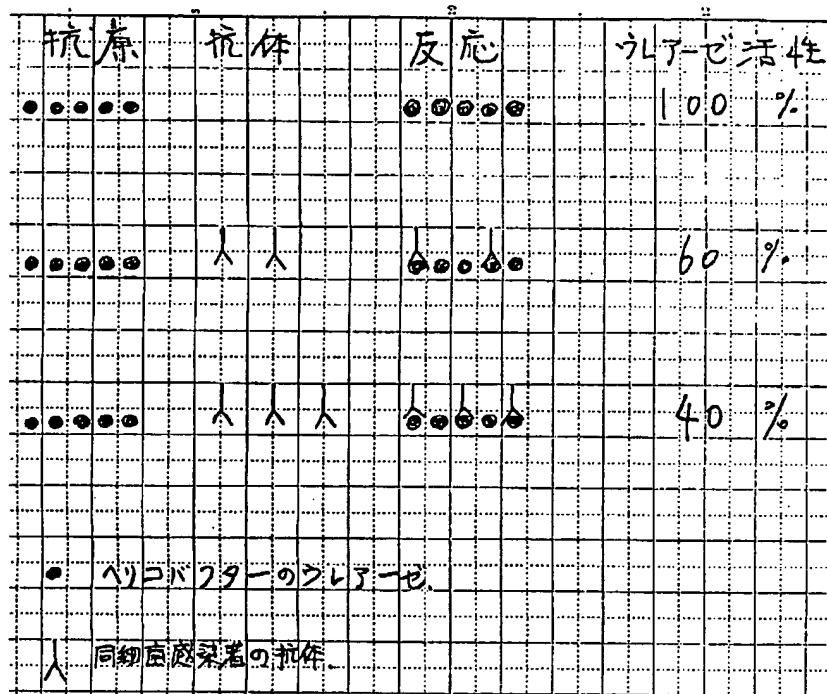 抗原 抗体 反応 ウレアーゼ活性
100 %
60 %
40 %
ヘリコバクターのウレアーゼ.
同細菌感染者の抗体.